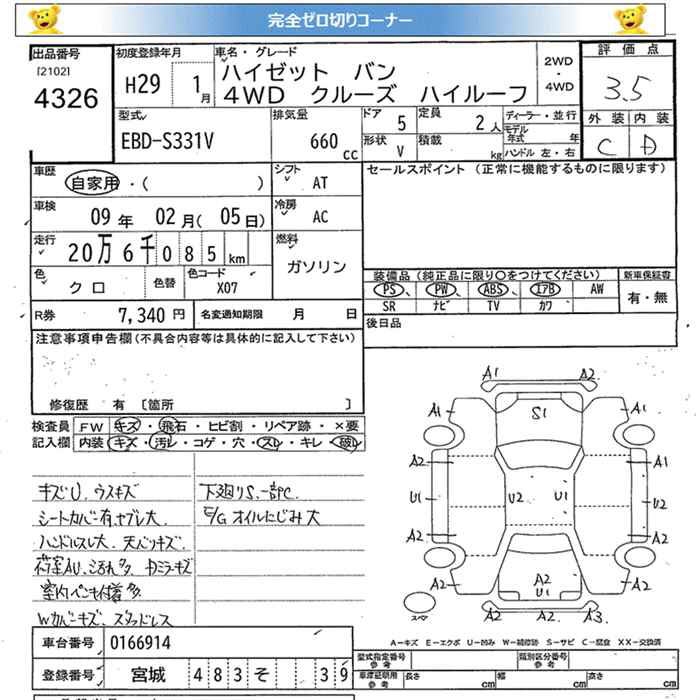 完全ゼロ切りコーナー
出品番号 初度登録年月 車名・グレード 2WD 評価点
[2102] H29 1月 ハイゼット バン ・ 3.5
4326 4WD クルーズ ハイルーフ 4WD 外装 内装
C D
型式 排気量 ドア 定員 ディーラー・並行
EBD-S331V 660cc 5 2人 モデル年式 年
形状 V 積載 kg ハンドル 左・右
車歴 シフト セールスポイント (正常に機能するものに限ります)
自家用・( ) AT
車検 冷房
09年 02月(05日) AC
走行 燃料
20万6千085km ガソリン
色 色替 色コード 装備品(純正品に限り〇をつけてください) 新車保証書
クロ X07 PS、 PW、 ABS、 エアB AW 有・無
SR ナビ TV カワ
R券 7,340円 名変通知期限 月 日 後日品
注意事項申告欄(不具合内容等は具体的に記入して下さい)
修復歴 有 [箇所 ]
検査員 FW キズ・飛石・ヒビ割・リペア跡・×要
記入欄 内装 キズ・汚レ・コゲ・穴・スレ・キレ・破レ
キズU、ウスキズ 下廻りS、一部C
シートカバー有、ヤブレ大 E/Gオイルにじみ大
ハンドルスレ大、天バリキズ
荷室AU、ヨゴレ多
室内ペンキ付着多
Wカバーキズ、スタッドレス
A1 A2
A1 S1 A1
A2 A1
U1 U2 U1 U2
A2 A2
A2 A2 U1 A2
スペア A2 A2 A3
A-キズ E-エクボ U-凹み W-補修跡 S-サビ C-腐食 XX-交換済
車台番号 0166914 型式指定番号 参考 類別区分番号 参考
登録番号 宮城 483 そ 39 車庫証明用 参考 長さ cm 幅 cm 高さ cm